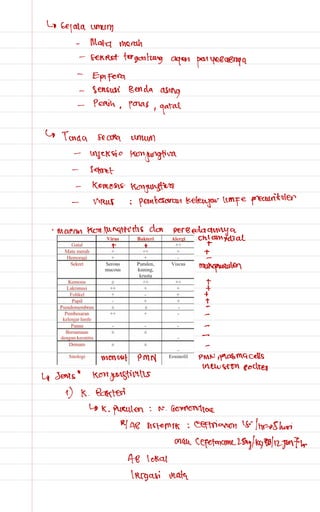 ↳ Gejala umum
- Mata merah
- Sekret tergantung agen penyebabnya
- Epifora
- Sensasi Benda asing
- Perih, panas, gatal
↳ Tanda secara umum
- injeksio konjungtiva
- Sekret
- Kemosis Konjungtiva
- virus : pembesaran kelenjar limfe preaurikuler
• macam Konjungtivitis dan perbedaannya
Virus Bakteri Alergi chlamydial
Gatal + + ++ +
Mata merah + ++ + +
Hemoragi + + -
Sekret Serous mucous Purulen, kuning, krusta Viscus mukopurulen
Kemosis ± ++ ++
Lakrimasi ++ + + +
Folikel + - + +
Papil - + + +
Pseudomembran ± ± - -
Pembesaran kelenjar limfe ++ + - -
Pannus - - - -
Bersamaan dengan keratitis ± ± - -
Demam ± ± - -
Sitologi monosit PMN Eosinofil PMN, plasma cells
↳ Jenis" Konjungtivitis
1) K. Bakteri
↳ K. purulen : N. Gonorrhoeae
AB lokal
Irigasi mata